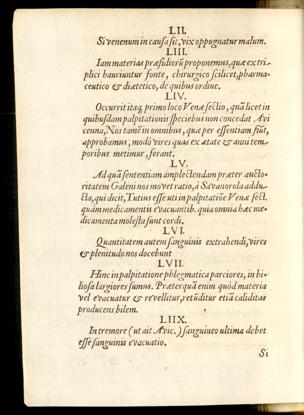 LII.
Si venenum in causa sit, vix oppugnatur malum.
LIII.
Iam materias præsidiorũ proponemus, quæ ex tri-
plici hauriuntur fonte, chirurgico scilicet, pharma-
ceutico & diætetico, de quibus ordine.
LIV.
Occurrit itaq; primo loco Venæ sectio, quã licet in
quibusdam palpitationis speciebus non concedat Avi
cenna, Nos tamẽ in omnibus, quæ per essentiam fiũt,
approbamus, modò vires quas ex ætate & anni tem-
poribus metimur, ferant.
LV.
Ad quã sententiam amplectendam præter aucto-
ritatem Galeni nos movet ratio, à Savanorola addu-
cta, qui dicit, Tutius esse uti in palpitatiõe Venæ sect.
quàm medicamentis evacuantib. quia omnia hæc me-
dicamenta molesta sunt cordi.
LVI.
Quantitatem autem sanguinis extrahendi, vires
& plenitudo nos docebunt
LVII.
Hinc in palpitatione phlegmatica parciores, in bi-
liosa largiores sumus. Præterquã enim quòd materia
vel evacuatur & revellitur, retũditur etiã caliditas
producens bilem.
LIIX.
In tremore (ut ait Avic.) sanguineo ultima debet
esse sanguinis evacuatio.
Si